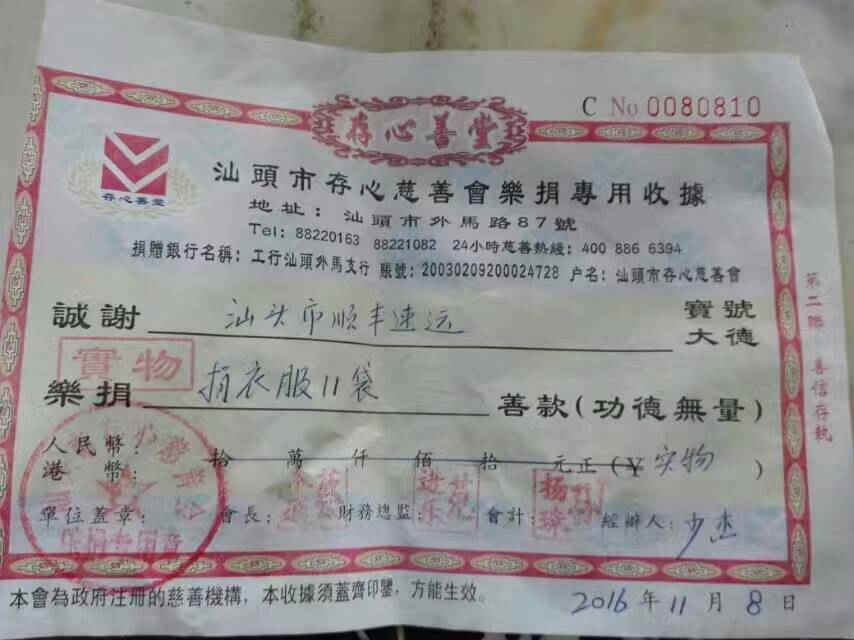 C No 0080810
存心善堂
存心善堂
汕頭市存心慈善會樂捐專用收據
地址：汕頭市外馬路87號
Tel: 88220163 88221082 24小時慈善熱綫：400 886 6394
捐贈銀行名稱：工行汕頭外馬支行 賬號：20030209200024728 户名：汕頭市存心慈善會
誠謝 汕头市顺丰速运 寶號
大德
實物
樂捐 捐衣服11袋 善款（功德無量）
人民幣：
港幣： 拾 萬 仟 佰 拾 元正（¥ 实物 ）
單位蓋章： 會長： 財務總監： 會計： 經辦人：少杰
本會為政府注册的慈善機構，本收據須蓋齊印鑒，方能生效。
2016年11月8日
第二聯 善信存執